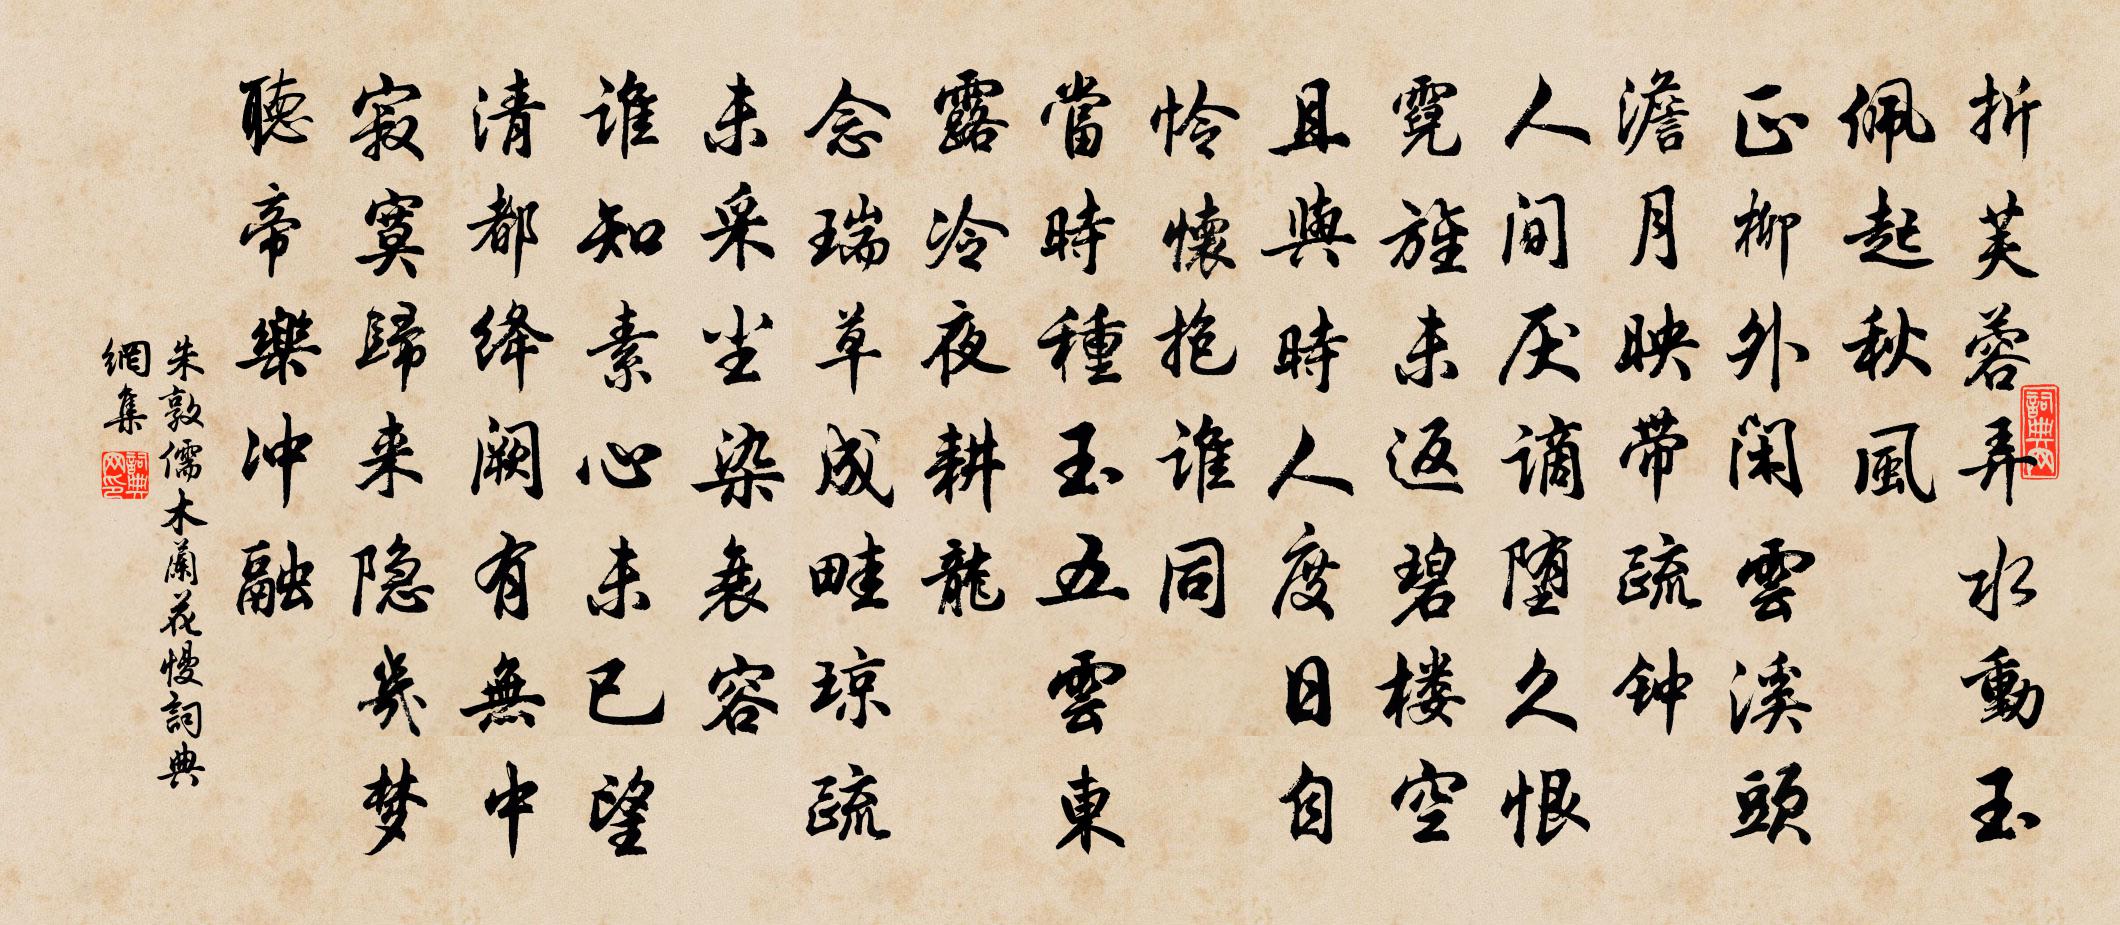 折芙蓉弄水動玉
佩起秋風
正柳外闲雲溪頭
澹月映带疏钟
人间厌谪堕久恨
霓旌未返碧楼空
且與時人度日自
怜懷抱谁同
當時種玉五雲東
露冷夜耕龍
念瑞草成畦琼疏
未采尘染衰容
谁知素心未已望
清都绛阙有無中
寂寞歸来隐几梦
聽帝樂冲融
朱敦儒木蘭花慢詞典
網集
詞典网
詞典网